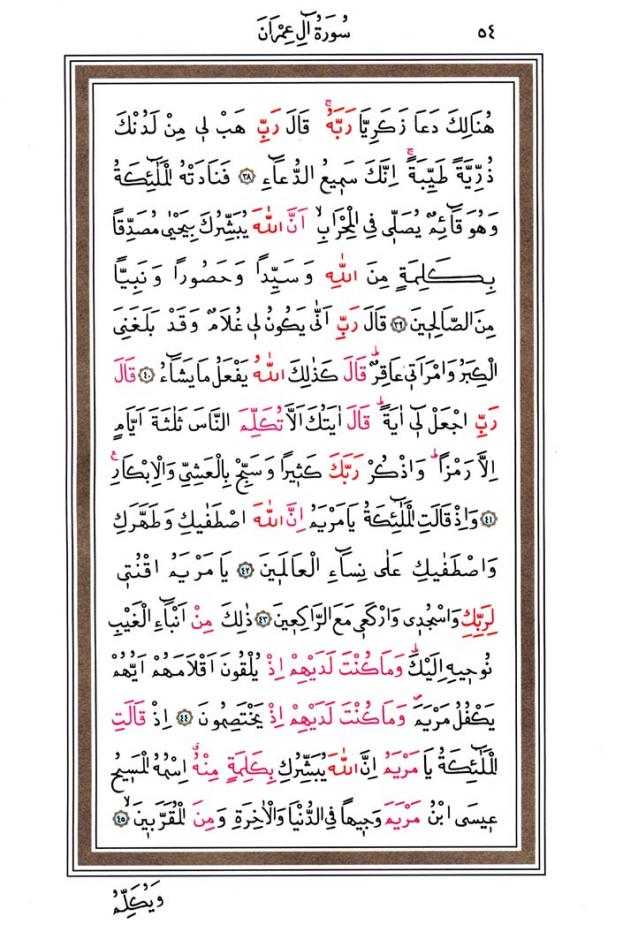 ٥٤
سُورَةُ اٰلِ عِمْرَانَ
هُنَالِكَ دَعَا زَكَرِيَّا رَبَّهُۚ قَالَ رَبِّ هَبْ لٖى مِنْ لَدُنْكَ
ذُرِّيَّةً طَيِّبَةًۚ اِنَّكَ سَمٖيعُ الدُّعَٓاءِ ﴿٣٨﴾ فَنَادَتْهُ الْمَلٰٓئِكَةُ
وَهُوَ قَٓائِمٌ يُصَلّٖى فِى الْمِحْرَابِۙ اَنَّ اللّٰهَ يُبَشِّرُكَ بِيَحْيٰى مُصَدِّقًا
بِكَلِمَةٍ مِنَ اللّٰهِ وَسَيِّداً وَحَصُوراً وَنَبِيًّا
مِنَ الصَّالِحٖينَ ﴿٣٩﴾ قَالَ رَبِّ اَنّٰى يَكُونُ لٖى غُلَامٌ وَقَدْ بَلَغَنِىَ
الْكِبَرُ وَامْرَاَتٖى عَاقِرٌؕ قَالَ كَذٰلِكَ اللّٰهُ يَفْعَلُ مَا يَشَٓاءُ ﴿٤٠﴾ قَالَ
رَبِّ اجْعَلْ لٖٓى اٰيَةًؕ قَالَ اٰيَتُكَ اَلَّا تُكَلِّمَ النَّاسَ ثَلٰثَةَ اَيَّامٍ
اِلَّا رَمْزاًؕ وَاذْكُرْ رَبَّكَ كَثٖيراً وَسَبِّحْ بِالْعَشِىِّ وَالْاِبْكَارِࣖ
﴿٤١﴾ وَاِذْ قَالَتِ الْمَلٰٓئِكَةُ يَا مَرْيَمُ اِنَّ اللّٰهَ اصْطَفٰيكِ وَطَهَّرَكِ
وَاصْطَفٰيكِ عَلٰى نِسَٓاءِ الْعَالَمٖينَ ﴿٤٢﴾ يَا مَرْيَمُ اقْنُتٖى
لِرَبِّكِ وَاسْجُدٖى وَارْكَعٖى مَعَ الرَّاكِعٖينَ ﴿٤٣﴾ ذٰلِكَ مِنْ اَنْبَٓاءِ الْغَيْبِ
نُوحٖيهِ اِلَيْكَؕ وَمَا كُنْتَ لَدَيْهِمْ اِذْ يُلْقُونَ اَقْلَامَهُمْ اَيُّهُمْ
يَكْفُلُ مَرْيَمَࣕ وَمَا كُنْتَ لَدَيْهِمْ اِذْ يَخْتَصِمُونَ ﴿٤٤﴾ اِذْ قَالَتِ
الْمَلٰٓئِكَةُ يَا مَرْيَمُ اِنَّ اللّٰهَ يُبَشِّرُكِ بِكَلِمَةٍ مِنْهُࣗ اِسْمُهُ الْمَسٖيحُ
عٖيسَى ابْنُ مَرْيَمَ وَجٖيهاً فِى الدُّنْيَا وَالْاٰخِرَةِ وَمِنَ الْمُقَرَّبٖينَۙ ﴿٤٥﴾
وَيُكَلِّمُ